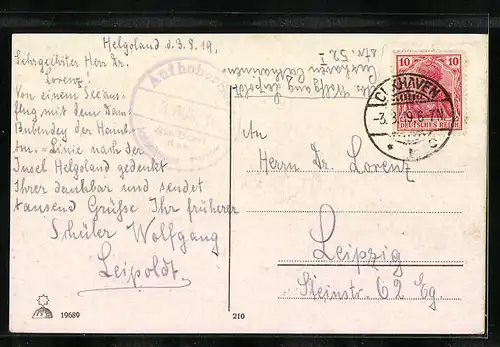 Helgoland d. 3. 8. 19.
Sehrgeehrter Herr Dr.
Lorenz!
Von einem Seeaus-
flug mit dem Dam.
Bubendey der Hamb.
Am. Linie nach der
Insel Helgoland gedenkt
Ihrer dankbar und sendet
tausend Grüsse Ihr früherer
Schüler Wolfgang
Leipoldt.
Wolfgang Leipoldt
Cuxhaven
str. 52 I
10 10
DEUTSCHES REICH
CUXHAVEN
-3.8.19.6-7N
* c
An
Herrn Dr. Lorenz
Leipzig
Steinstr. 62 Eg.
19689
210